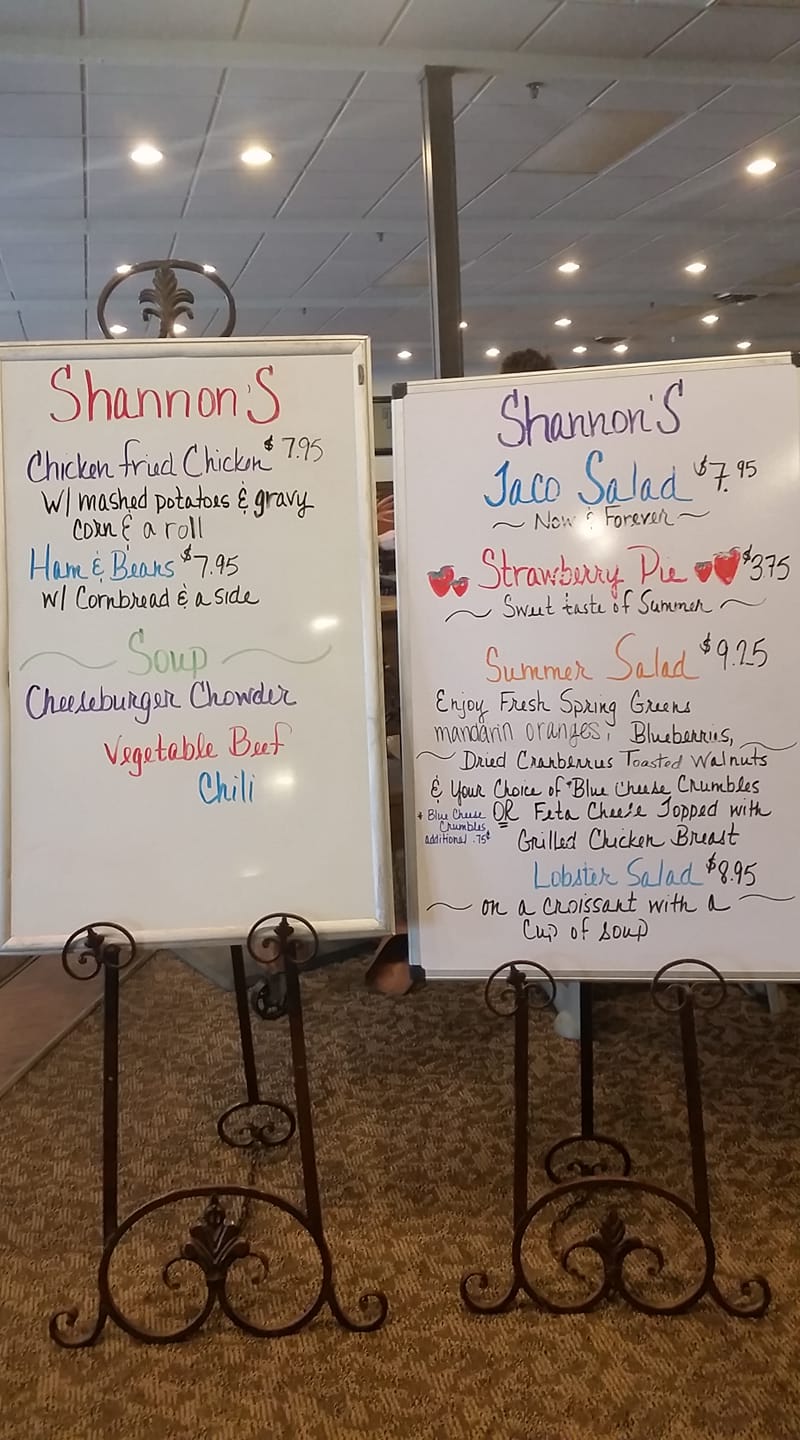 Shannon's
Chicken fried Chicken $7.95
w/ mashed potatoes & gravy
corn & a roll
Ham & Beans $7.95
w/ Cornbread & a side
Soup
Cheeseburger Chowder
Vegetable Beef
Chili
Shannon's
Taco Salad $7.95
~ Now & Forever ~
Strawberry Pie $3.75
~ Sweet taste of Summer ~
Summer Salad $9.25
Enjoy Fresh Spring Greens
mandarin oranges, Blueberries,
Dried Cranberries Toasted Walnuts
& Your Choice of *Blue Cheese Crumbles
OR Feta Cheese Topped with
Grilled Chicken Breast
* Blue Cheese
Crumbles
additional .75¢
Lobster Salad $8.95
~ on a croissant with a ~
Cup of soup